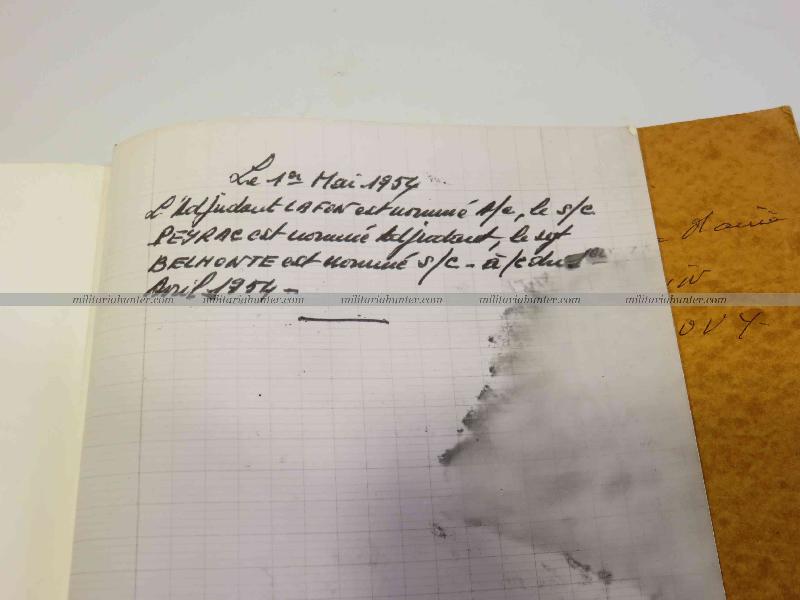 Le 1er Mai 1954
L'Adjudant LAFON est nommé A/c, le s/c
PEYRAC est nommé Adjudant, le sgt
BELMONTE est nommé s/c - à/c du 1er
Avril 1954 -
militariahunter.com militariahunter.com militariahunter.com militariahunter.com militariahunter.com